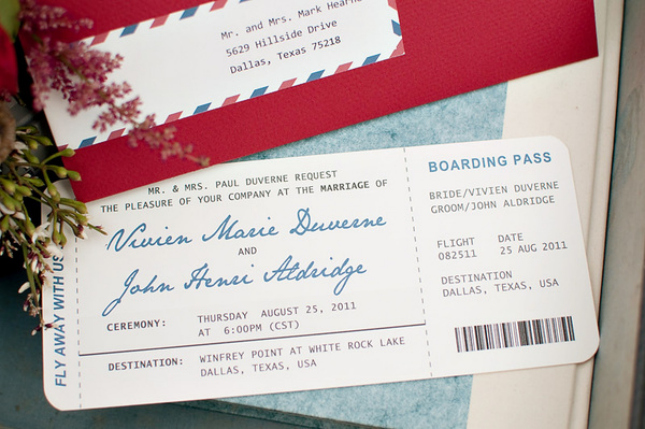 Mr. and Mrs. Mark
5629 Hillside Drive
Dallas, Texas 75218
FLY AWAY WITH US
MR. & MRS. PAUL DUVERNE REQUEST
THE PLEASURE OF YOUR COMPANY AT THE MARRIAGE OF
Vivien Marie Duverne
AND
John Henri Aldridge
CEREMONY: THURSDAY AUGUST 25, 2011
AT 6:00PM (CST)
DESTINATION: WINFREY POINT AT WHITE ROCK LAKE
DALLAS, TEXAS, USA
BOARDING PASS
BRIDE/VIVIEN DUVERNE
GROOM/JOHN ALDRIDGE
FLIGHT DATE
082511 25 AUG 2011
DESTINATION
DALLAS, TEXAS, USA